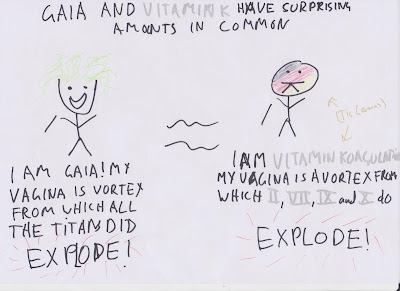 GAIA AND VITAMIN K HAVE SURPRISING
AMOUNTS IN COMMON
I AM GAIA! MY
VAGINA IS VORTEX
FROM WHICH ALL
THE TITANS DID
EXPLODE!
I AM VITAMIN KOAGULATION
MY VAGINA IS A VORTEX FROM
WHICH II, VII, IX and X do
EXPLODE!